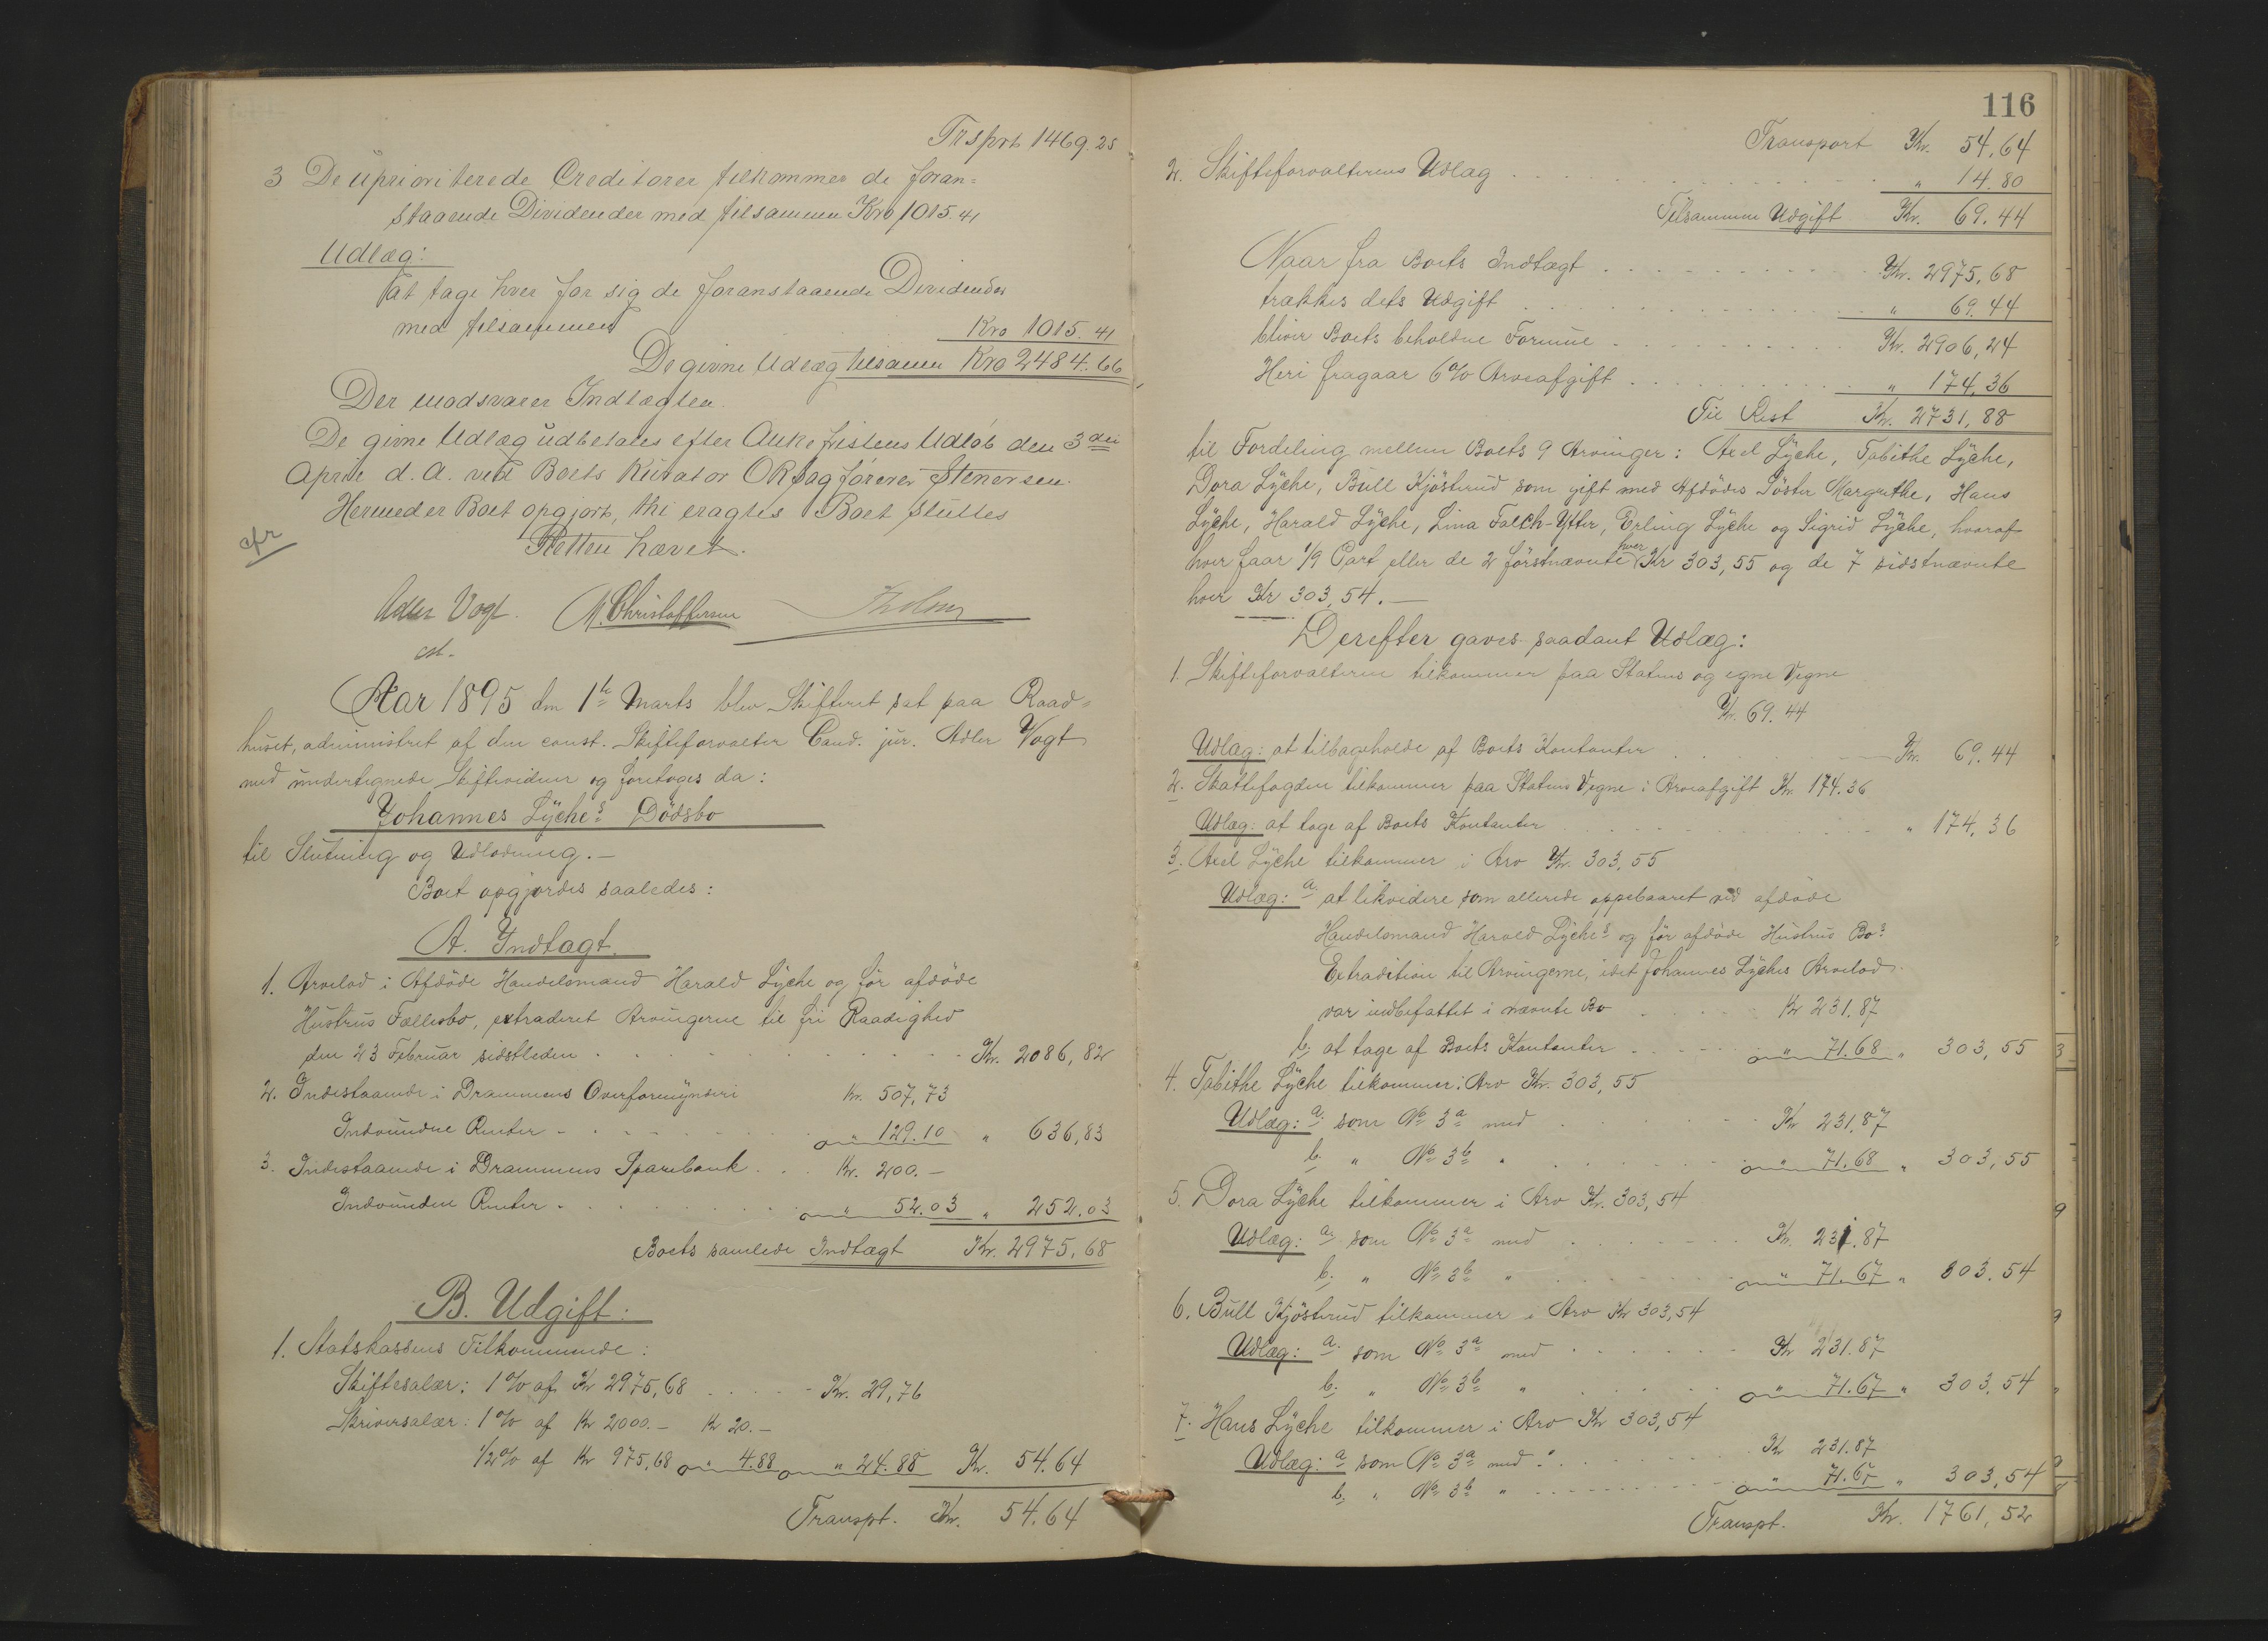 Trsprt 1469.25
3 De uprioriterede Creditorer tilkommer de foran=
staaende Dividender med tilsammen Kro 1015.41
Udlæg:
at tage hver for sig de foranstaaende Dividender
med tilsammen Kro 1015.41
De givne Udlæg tilsamen Kro 2484.66
Der modsvarer Indtægten.
De givne Udlæg udbetales efter Ankefristens Udløb den 3die
April d.A. ved Boets Kurator ORsagfører Stenersen.
Hermed er Boet opgjort, thi eragtes Boet sluttes
Retten hævet.
cfr
Adler Vogt. M. Christoffersen
cst.
Aar 1895 den 1te Marts blev Skifteret sat paa Raad=
huset, administret af den const. Skifteforvalter Cand. jur. Adler Vogt
med undertegnede Skiftevidner og foretoges da:
Johannes Lÿches Dödsbo
til Slutning og Udlodning.—
Boet opgjordes saaledes:
A. Indtægt.
1. Arvelod i Afdöde Handelsmand Harald Lÿche og för afdöde
Hustrus Fællesbo, extraderet Arvingerne til fri Raadighed
den 23 Februar sidstleden . . . Kr. 2086,82
2. Indestaaende i Drammens Overformÿnderi Kr. 507,73
Indvundne Renter - . . . " 129.10 " 636,83
3. Indestaaende i Drammens Sparebank . . . Kr. 200.—
Indvundne Renter . . . " 52.03 " 252.03
Boets samlede Indtægt Kr. 2975,68
B. Udgift:
1. Statskassens Tilkommende:
Skiftesalær: 1% af Kr 2975,68 . . . Kr. 29,76
Skriversalær: 1% af Kr 2000.— Kr 20.—
1/2% af Kr 975,68 " 4.88 " 24.88 Kr. 54.64
Transpt. Kr. 54.64
116
Transport Kr. 54,64
2. Skifteforvalterens Udlæg . . . " 14.80
Tilsammen Udgift Kr. 69.44
Naar fra Boets Indtægt . . . Kr. 2975,68
trækkes dets Udgift . . . " 69.44
bliver Boets beholdne Formue . . . Kr. 2906,24
Heri fragaar 6% Arveafgift . . . " 174,36
Til Rest Kr. 2731,88
til Fordeling mellem Boets 9 Arvinger: Axel Lÿche, Tabithe Lÿche,
Dora Lÿche, Bull Kjösterud som gift med Afdödes Söster Margrethe, Hans
Lÿche, Harald Lÿche, Lina Falch-Ytter, Erling Lÿche og Sigrid Lÿche, hvoraf
hver faar 1/9 Part eller de 2 förstnævnte hver Kr 303,55 og de 7 sidstnævnte
hver Kr 303,54.—
Derefter gaves saadant Udlæg:
1. Skifteforvalteren tilkommer paa Statens og egne Vegne
Kr. 69.44
Udlæg: at tilbageholde af Boets Kontanter . . . Kr. 69.44
2. Skattefogden tilkommer paa Statens Vegne i Arveafgift Kr. 174.36
Udlæg: at tage af Boets Kontanter . . . " 174,36
3. Axel Lÿche tilkommer i Arv Kr. 303,55
Udlæg: a. at likvidere som allerede oppebaaret ved afdöde
Handelsmand Harald Lÿches og för afdöde Hustrus Bos
Extradition til Arvingerne, idet Johannes Lÿches Arvelod
var indbefattet i nævnte Bo . . . Kr 231,87
b. at tage af Boets Kontanter . . . " 71.68 " 303,55
4. Tabithe Lÿche tilkommer i Arv Kr. 303,55
Udlæg: a. som No 3a med . . . Kr 231,87
b. " No 3b " . . . " 71.68 " 303,55
5. Dora Lÿche tilkommer i Arv Kr. 303,54
Udlæg: a. som No 3a med . . . Kr. 231.87
b. " No 3b " . . . " 71.67 " 303.54
6. Bull Kjösterud tilkommer i Arv Kr 303,54
Udlæg: a. som No 3a med . . . Kr 231.87
b. " No 3b " . . . " 71.67 " 303,54
7. Hans Lÿche tilkommer i Arv Kr 303,54
Udlæg: a som No 3a med . . . Kr 231.87
b. " No 3b " . . . " 71.67 " 303,54
Transpt. Kr. 1761,52